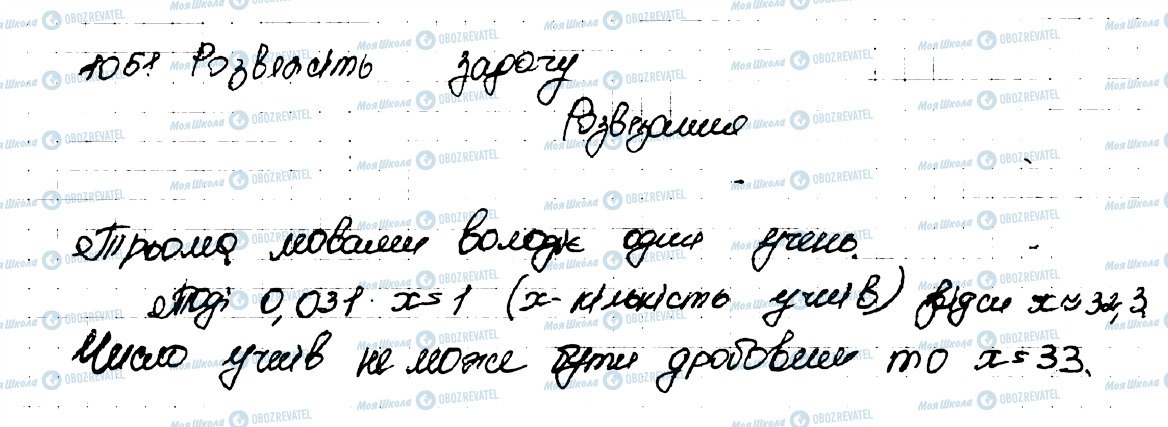 1051 Розвяжіть задачу
Розвізання
Трьома мовами володіє один учень.
Тоді 0,031 · x = 1 (x - кількість учнів) відси x ≈ 32,3
Число учнів не може бути дробовим то x = 33.